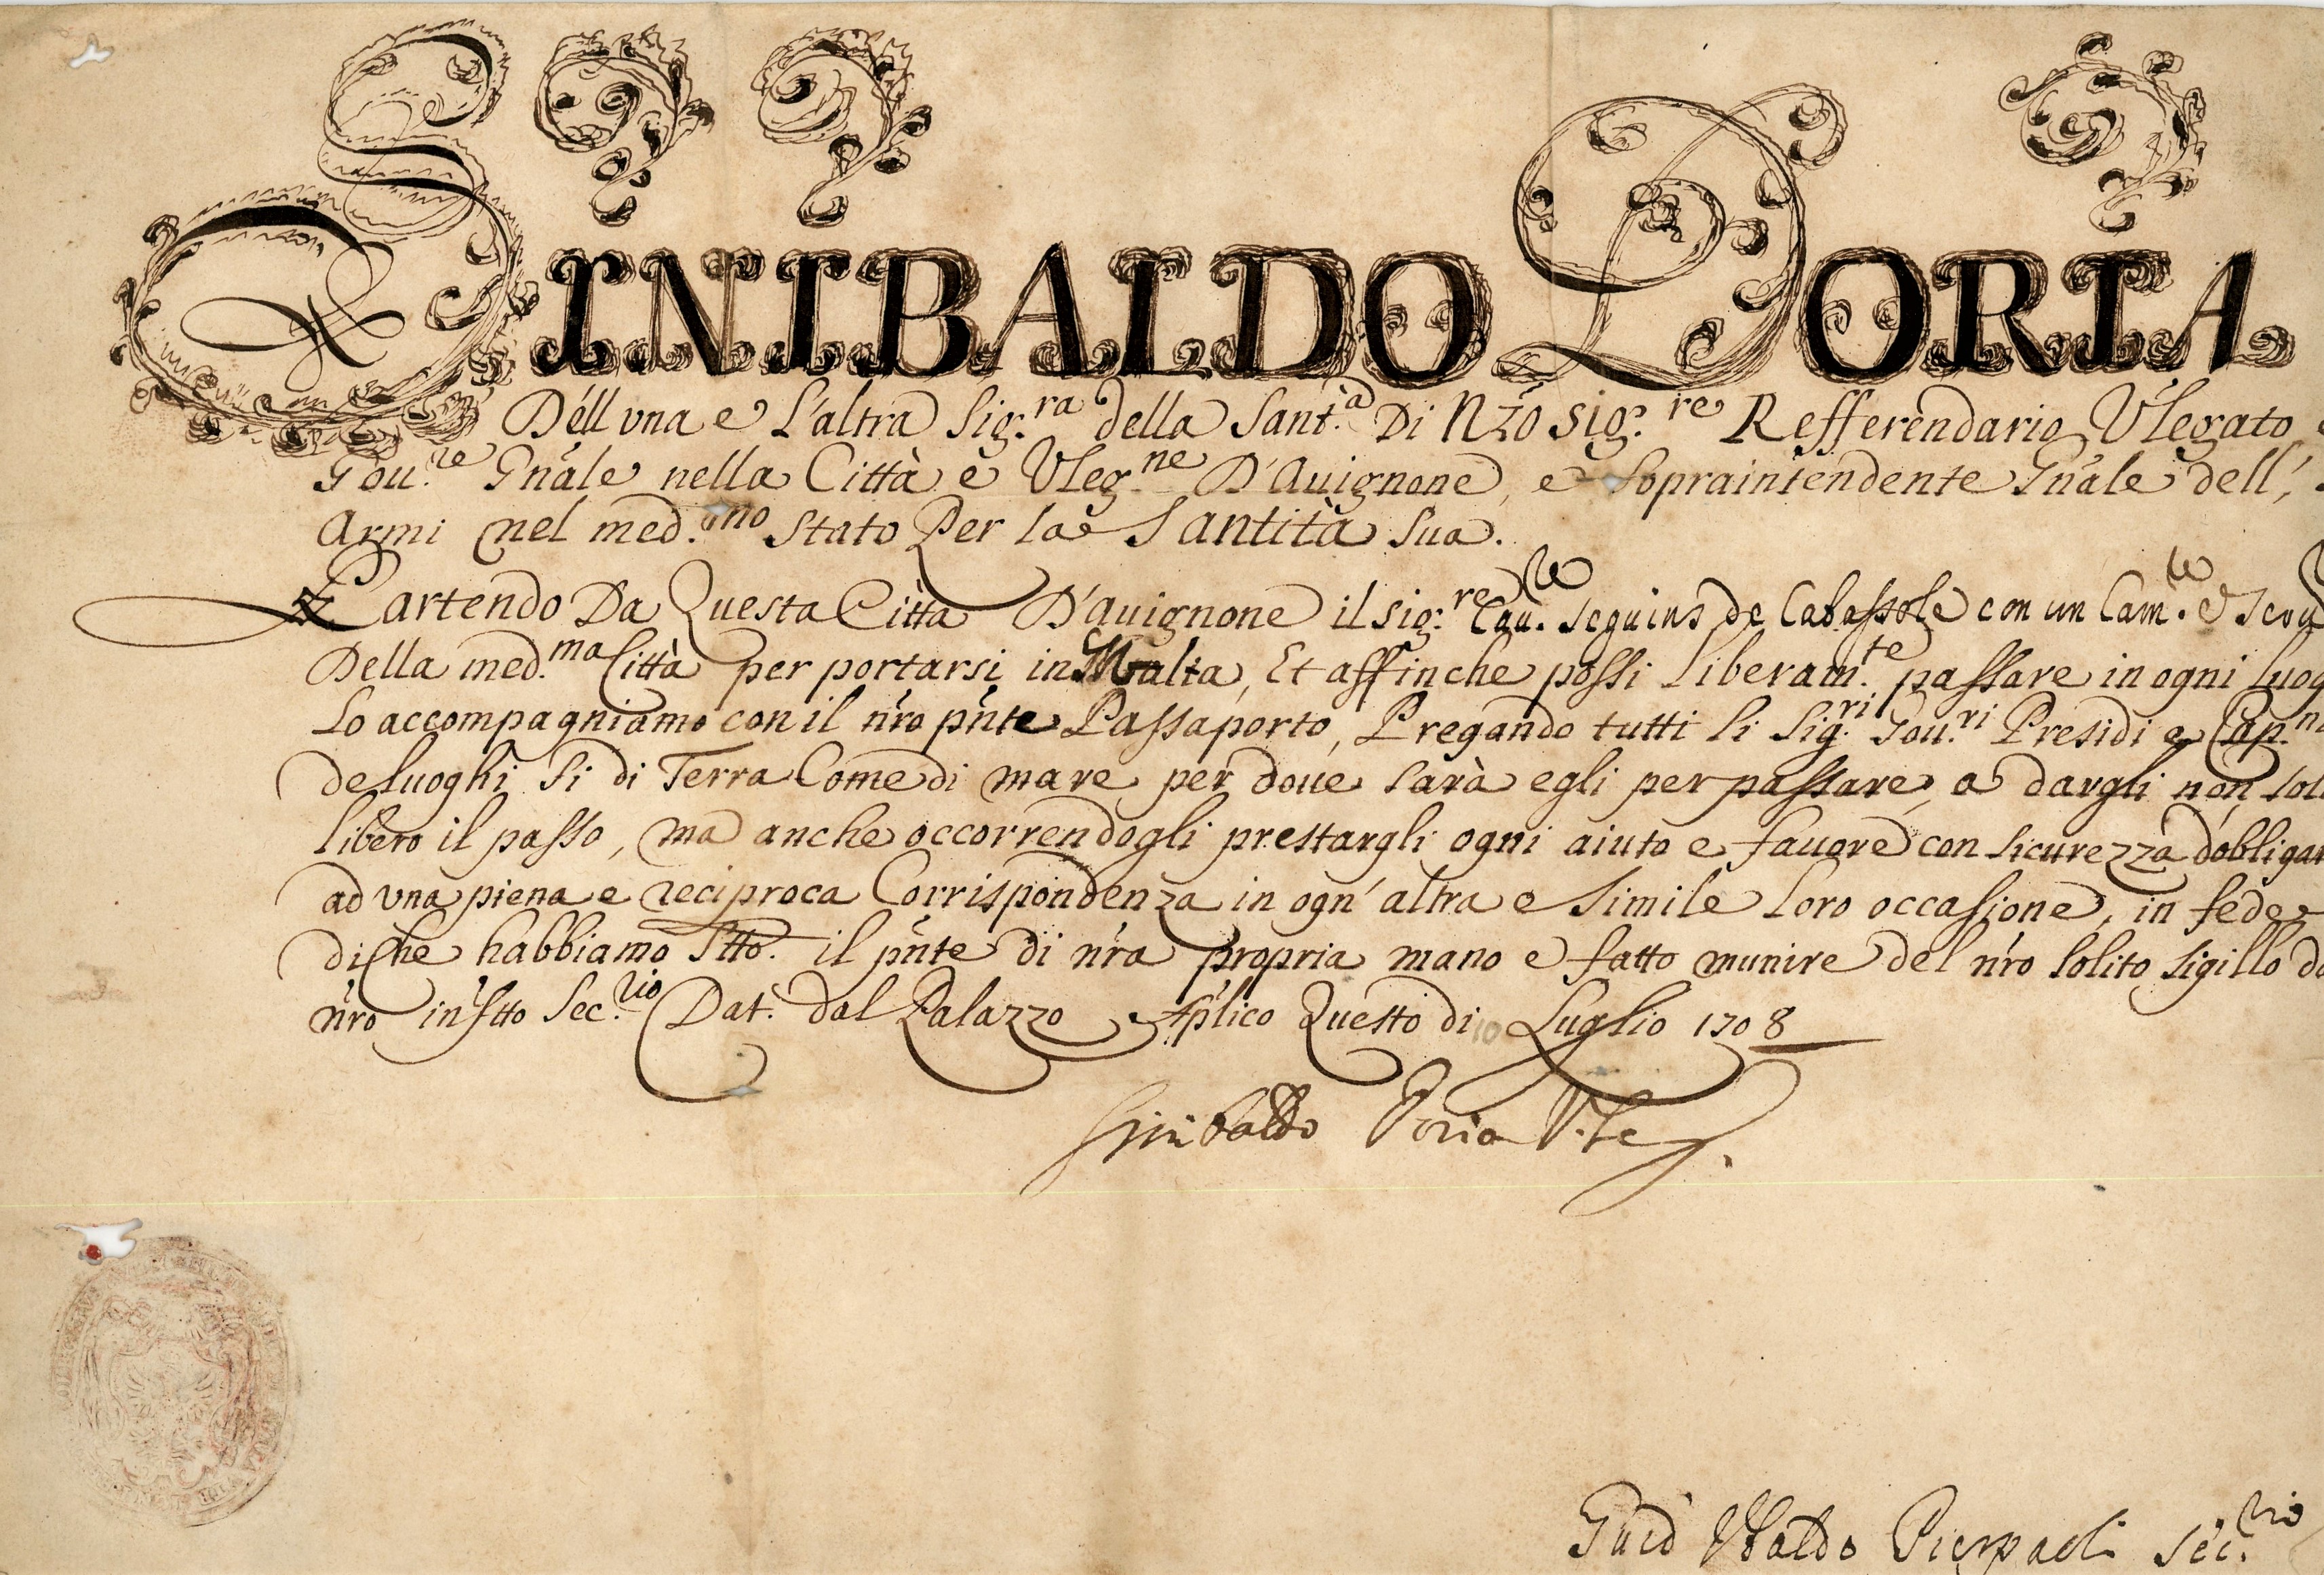 SINIBALDO DORIA
Dell vna e L'altra Sig:ra della Sant.à Di Nro sig:re Refferendario Vlegato
Gou.re Gnale nella Città e Vleg.ne D'Auignone, e Sopraintendente Gnale dell'
Armi nel med.mo Stato Per la Santità Sua.
Partendo Da Questa Città D'auignone il sig:re Cau.re Seguins de Cabassole con un Cam.re e Seru
Della med.ma Città per portarsi in Malta, Et affinche possi Liberam.te passare in ogni luog
Lo accompagniamo con il nro pnte Passaporto, Pregando tutti li Sig.ri Gou.ri Presidi e Cap.ni
de luoghi Si di Terra Come di mare per doue sarà egli per passare, a dargli non sol
libero il passo, ma anche occorrendogli prestargli ogni aiuto e fauore con sicurezza d'obligar
ad vna piena e reciproca Corrispondenza in ogn' altra e Simile Loro occasione, in fede
di che habbiamo Stto. il pnte di nra propria mano e fatto munire del nro solito sigillo da
nro infstto Sec.rio Dat. dal Palazzo Aplico Questo di 10 Luglio 1708
Sinibaldo Doria V.Le
Guid Vbaldo Pierpaoli Sec.rio